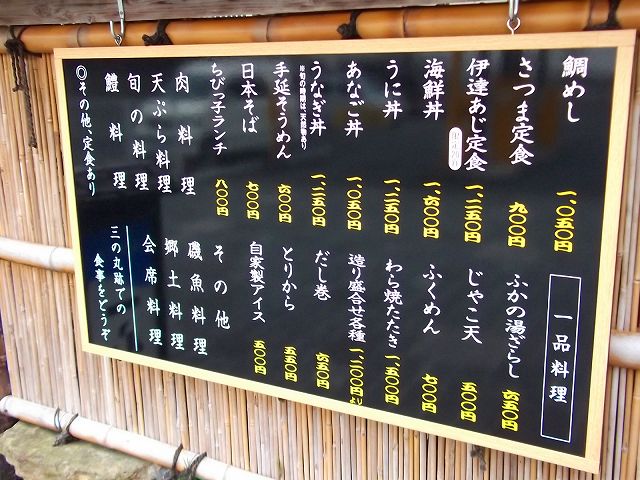 鯛めし 一、〇五〇円
さつま定食 九〇〇円
伊達あじ定食 一、二五〇円
海鮮丼 一、六〇〇円
うに丼 一、二五〇円
あなご丼 一、〇五〇円
うなぎ丼 一、二五〇円
※旬の時期は、天然物あり
手延そうめん 六〇〇円
日本そば 七〇〇円
ちびっ子ランチ 八〇〇円
肉料理
天ぷら料理
旬の料理
鱧料理
◎その他、定食あり
一品料理
ふかの湯ざらし 六五〇円
じゃこ天 五〇〇円
ふくめん 七〇〇円
わら焼たたき 一、五〇〇円
造り盛合せ各種 一、二〇〇円より
だし巻 六五〇円
とりから 五五〇円
自家製アイス 五〇〇円
その他
磯魚料理
郷土料理
会席料理
三の丸跡での
食事をどうぞ